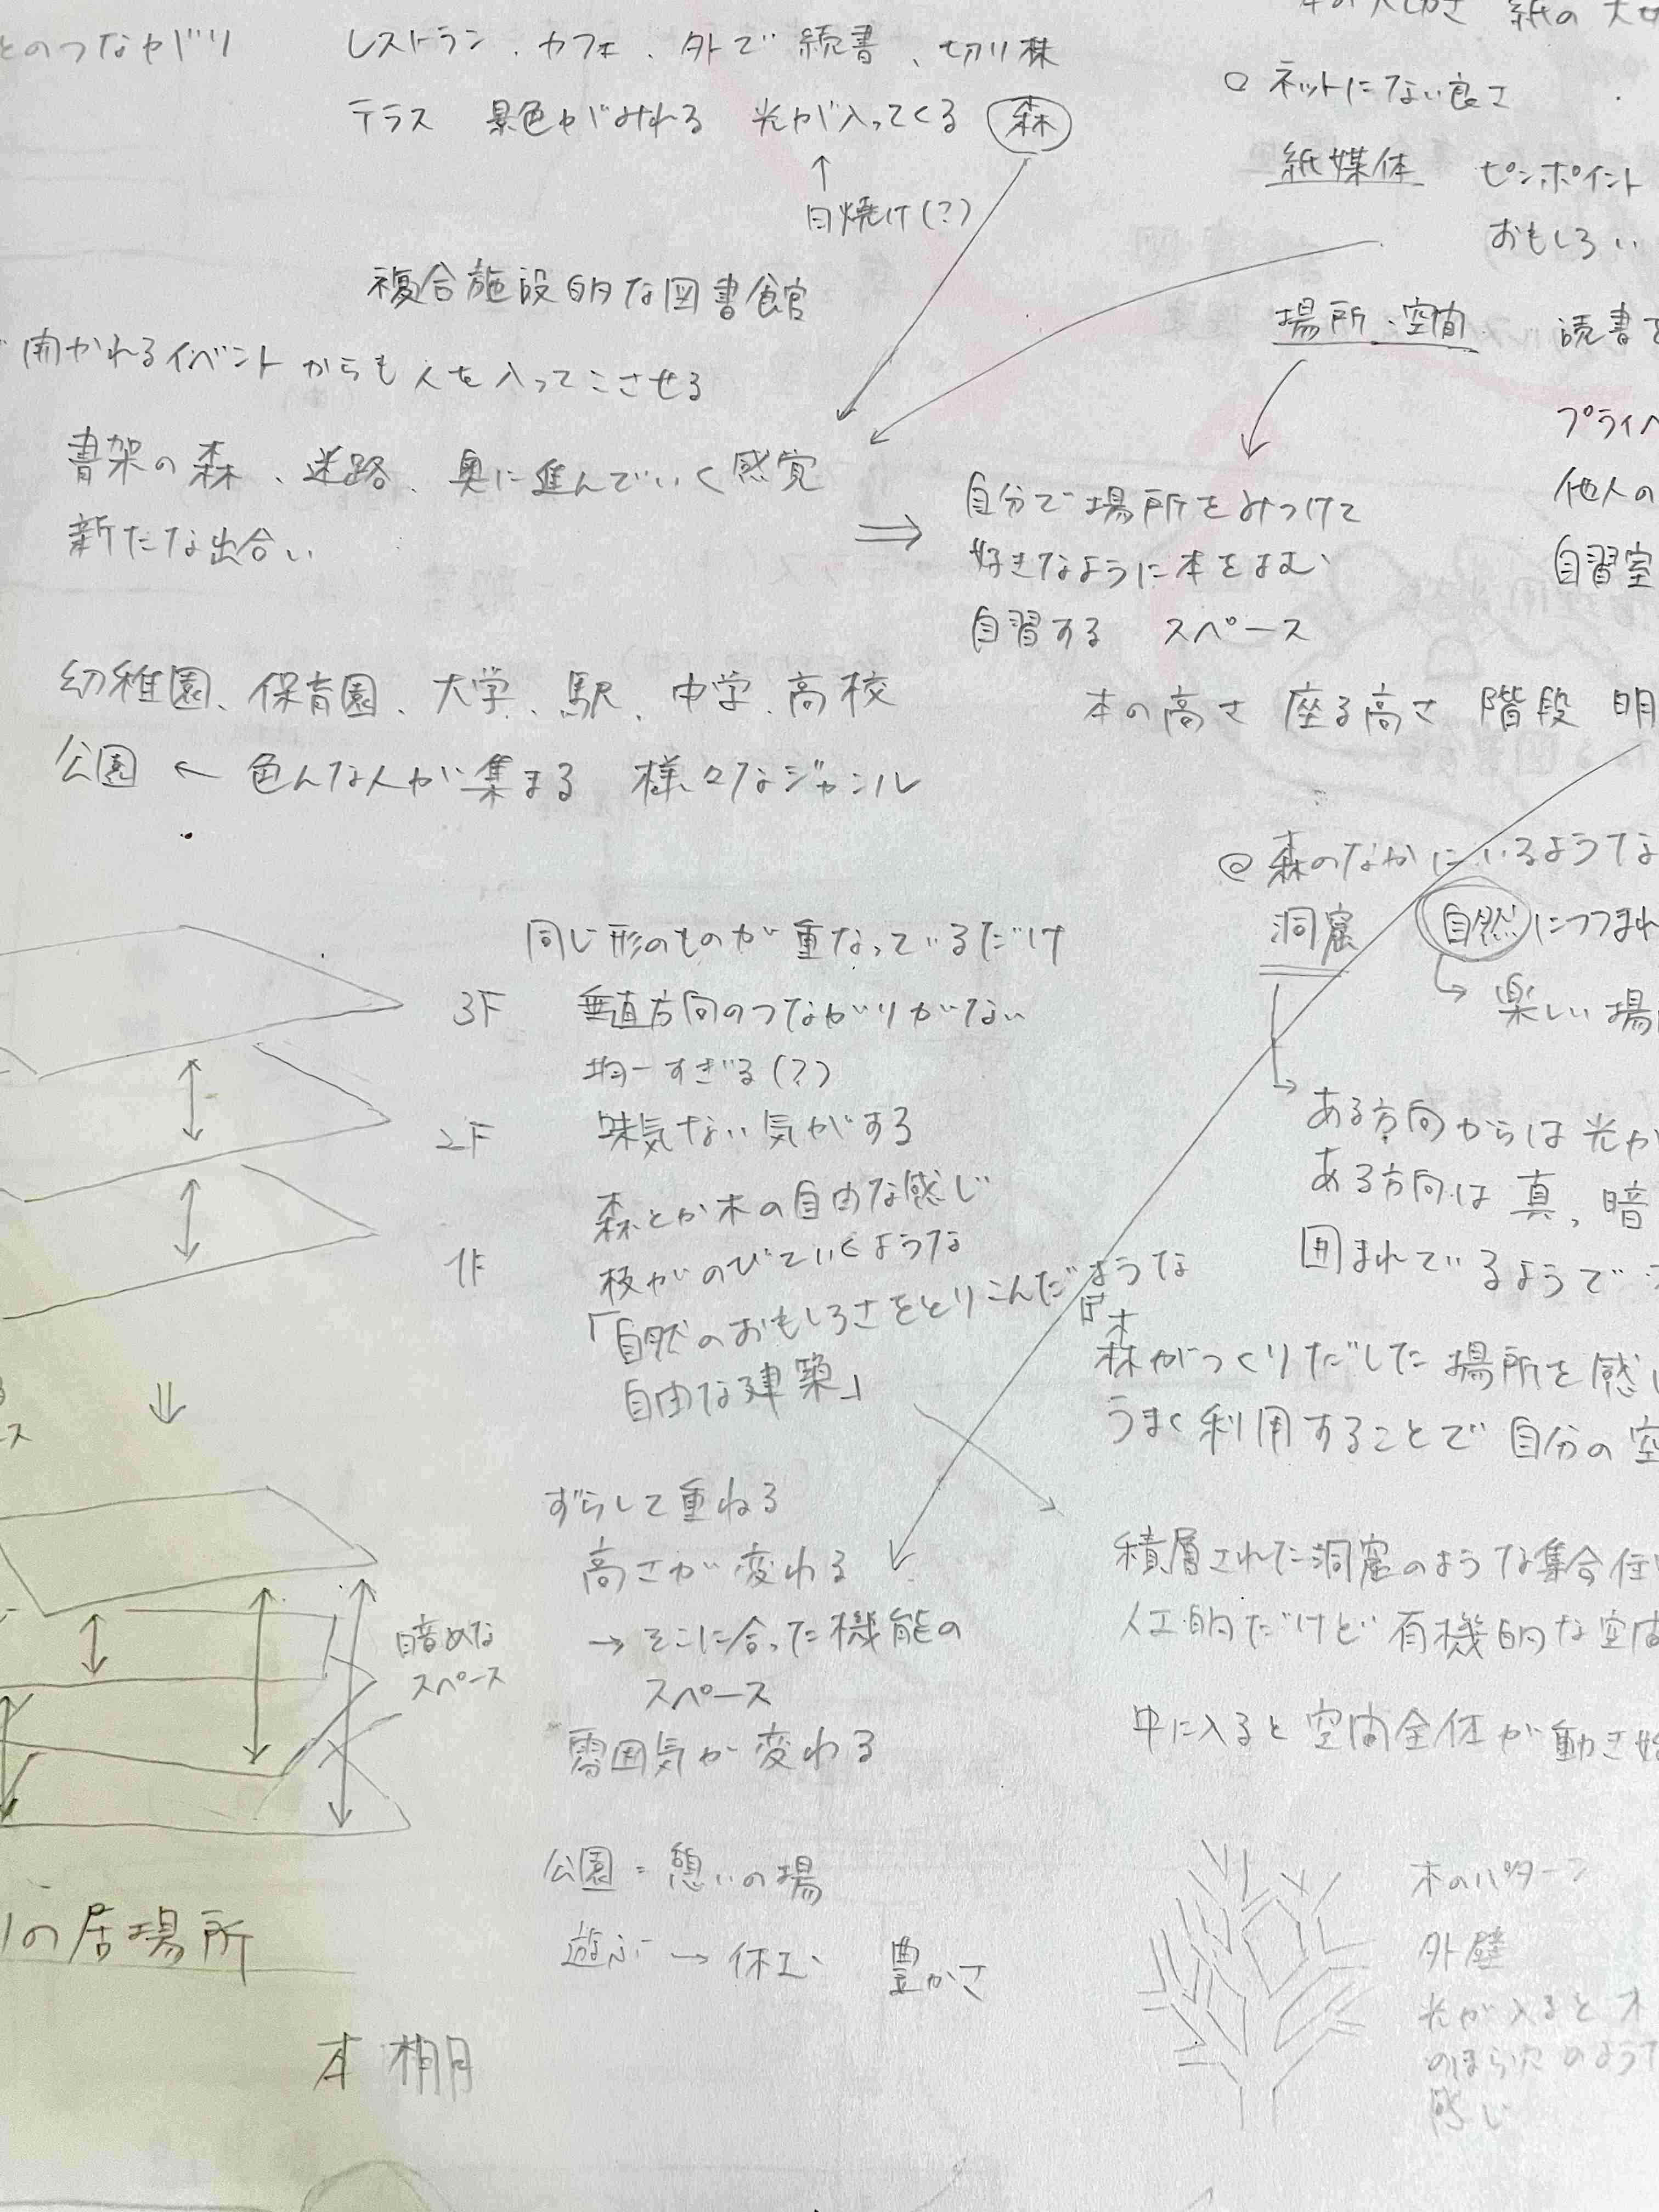 とのつながり
レストラン、カフェ、外で読書、切り株
テラス 景色がみれる 光が入ってくる 森
↑
日焼け(?)
複合施設的な図書館
開かれるイベントからも人を入ってこさせる
書架の森、迷路、奥に進んでいく感覚
新たな出合い
幼稚園、保育園、大学、駅、中学、高校
公園 ← 色んな人が集まる 様々なジャンル
本の大切さ 紙の大切
○ ネットにない良さ
紙媒体 ピンポイント
おもしろい
場所、空間 読書
プライベ
他人の
自習室
⇒ 自分で場所をみつけて
好きなように本をよむ
自習する スペース
本の高さ 座る高さ 階段 明
◎ 森のなかにいるような
洞窟 自然につつまれ
楽しい場
ある方向からは光が
ある方向は真、暗
囲まれているようで
同じ形のものが重なっているだけ
3F 垂直方向のつながりがない
均一すぎる(?)
2F 味気ない気がする
森とか木の自由な感じ
1F 枝がのびていくような
「自然のおもしろさをとりこんだような
自由な建築」
森がつくりだした場所を感じ
うまく利用することで自分の空
ス
ずらして重ねる
高さが変わる
→ そこに合った機能の
スペース
雰囲気が変わる
暗めな
スペース
積層された洞窟のような集合住
人工的だけど有機的な空間
中に入ると空間全体が動き始
公園 = 憩いの場
遊ぶ → 休む 豊かさ
の居場所
本棚
木のパターン
外壁
光が入ると木
のほら穴のような
感じ